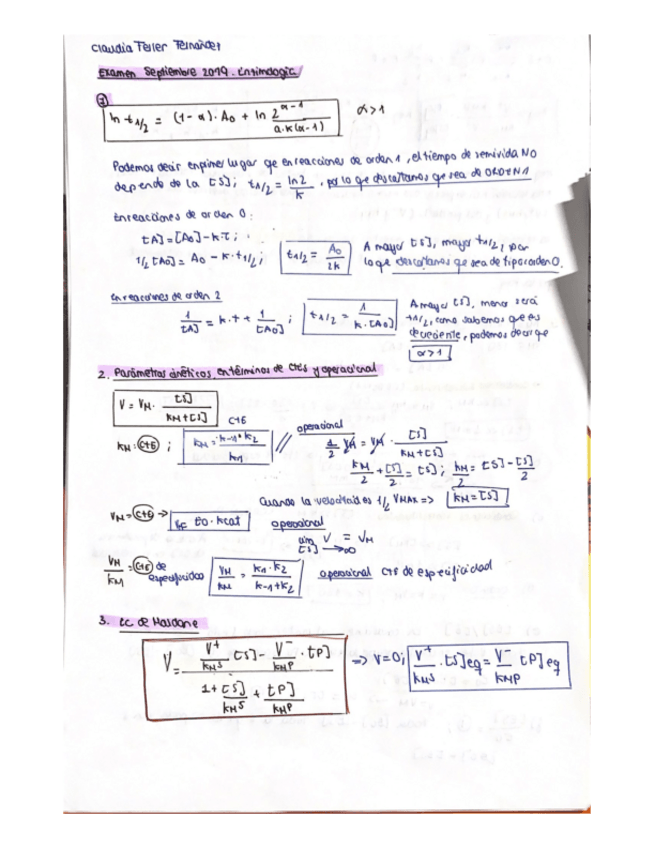 Claudia Teller Fernández
Examen Septiembre 2019. Enzimología
1
ln t1/2 = (1-α)·A0 + ln 2^(α-1) / a·k(α-1)   α>1
Podemos decir en primer lugar que en reacciones de orden 1, el tiempo de semivida NO
depende de la [S]; t1/2 = ln2/k, por lo que descartamos que sea de ORDEN 1
En reacciones de orden 0:
[A] = [A0] - k·t;
1/2 [A0] = A0 - k·t1/2; t1/2 = A0/2k   A mayor [S], mayor t1/2, por
lo que descartamos que sea de tipo orden 0.
En reacciones de orden 2
1/[A] = k·t + 1/[A0]; t1/2 = 1/k·[A0]   A mayor [S], menor será
t1/2, como sabemos que es
decreciente, podemos decir que
α>1
2. Parámetros cinéticos, en términos de ctes y operacional
V = VM · [S]/KM+[S]
KM: CTE; CTE KM = k-1+k2/k1 // operacional 1/2 VM = VM · [S]/KM+[S]
KM/2 + [S]/2 = [S]; KM/2 = [S] - [S]/2
Cuando la velocidad es 1/2 VMAX => KM = [S]
VM = CTE → VF E0·kcat operacional
lim V = VM
[S] → ∞
VM/KM = CTE de especificidad VM/KM = k1·k2/k-1+k2 operacional CTE de especificidad
3. EC de Haldane
V = V+/KMS [S] - V-/KMP · [P] / 1+[S]/KMS + [P]/KMP => V=0; V+/KMS · [S]eq = V-/KMP [P]eq